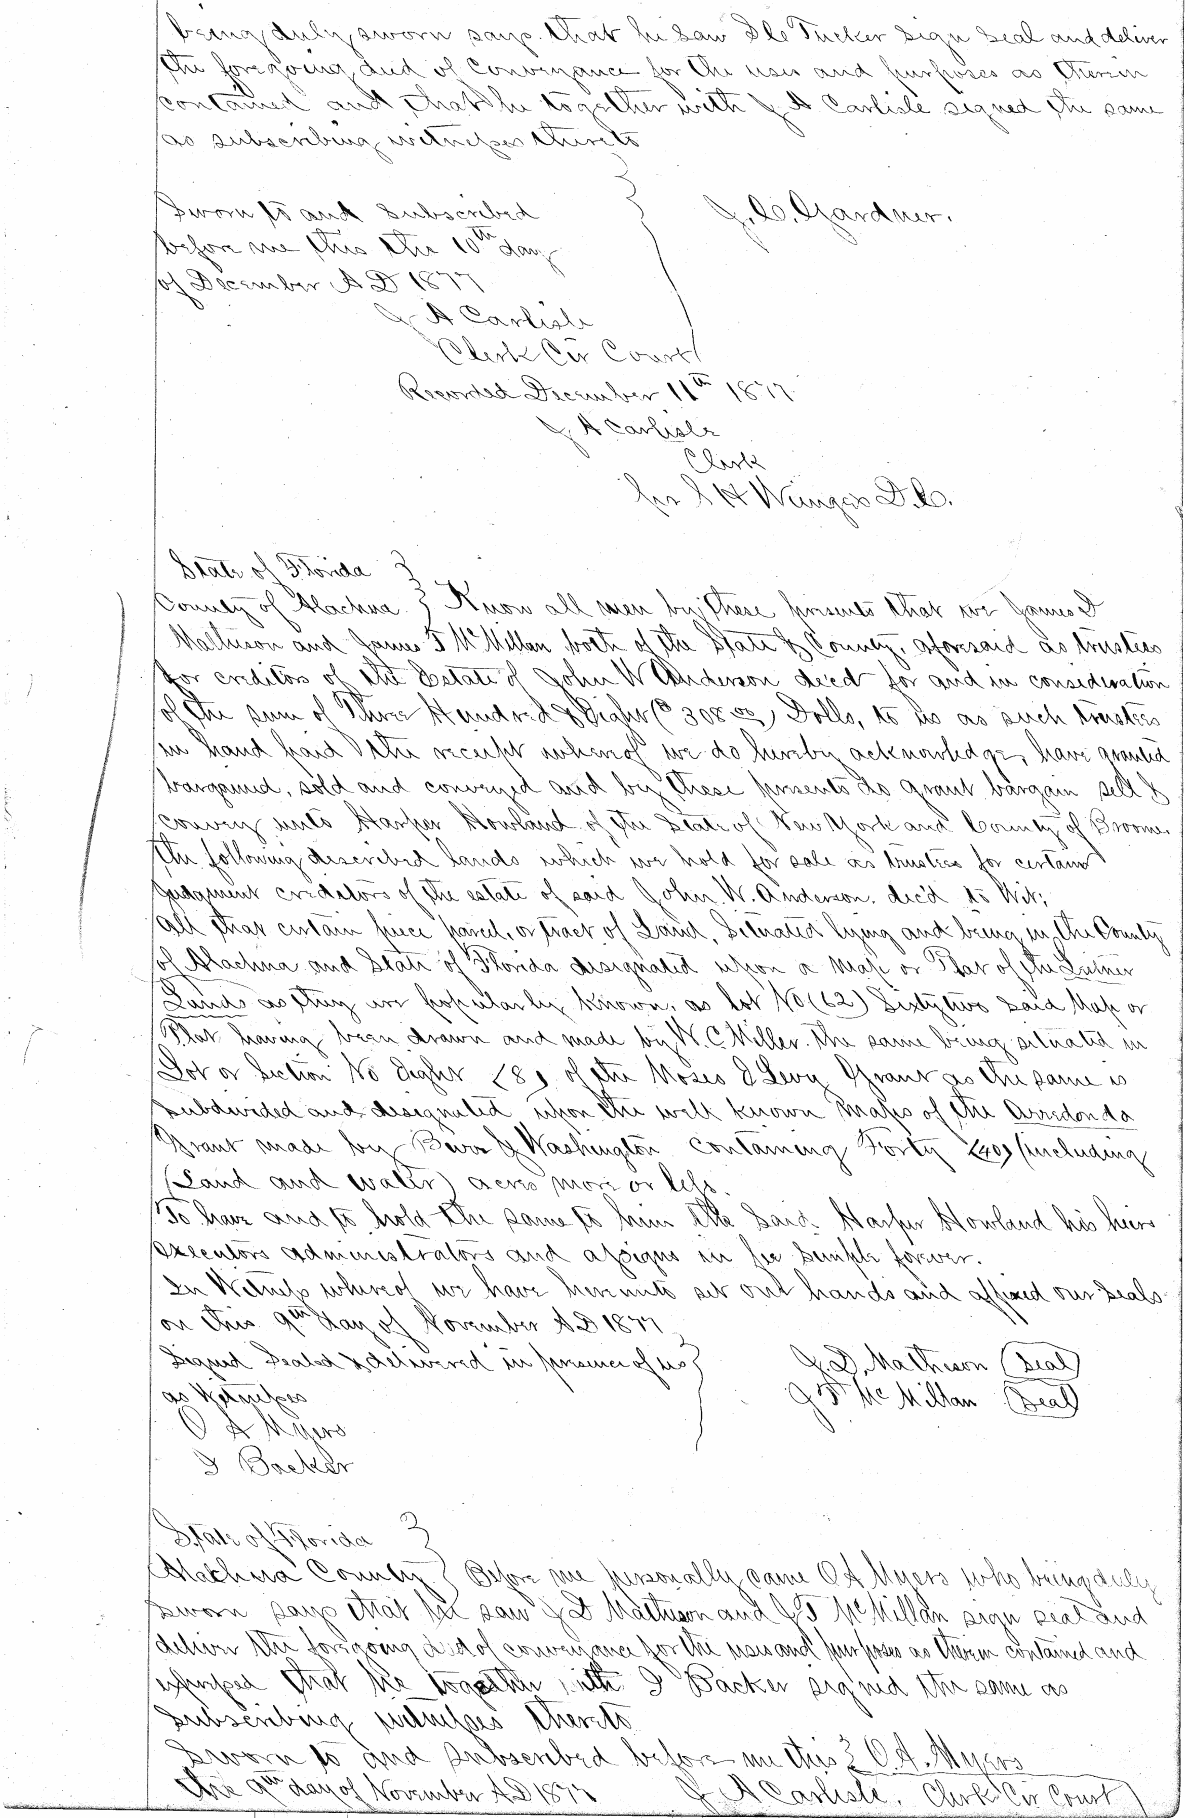 being duly sworn says that he saw D Le Tucker sign seal and deliver
the foregoing deed of conveyance for the uses and purposes as therein
contained and that he together with J A Carlisle signed the same
as subscribing witnesses thereto
Sworn to and subscribed
before me this the 10th day
of December A D 1877
J. C. Gardner.
J A Carlisle
Clerk Cir Court
Recorded December 11th 1877
J A Carlisle
Clerk
per S H D.C.
State of Florida
County of Alachua Know all men by these presents that we James D
Matheson and James F McMillan both of the State & County, aforesaid as trustees
for creditors of the Estate of John W Anderson dec'd for and in consideration
of the sum of Three Hundred & Eight ($ 308 00) Dolls, to us as such trustees
in hand paid the receipt whereof we do hereby acknowledge, have granted
bargained, sold and conveyed and by these presents do grant bargain sell &
convey unto Harper Howland of the State of New York and County of Broome.
the following described lands which we hold for sale as trustees for certain
judgment creditors of the estate of said John W. Anderson. dec'd to Wit;
All that certain piece parcel, or tract of Land, Situated lying and being in the County
of Alachua and State of Florida designated upon a Map or Plat of the
Lands as they are popularly known, as Lot No (62) Sixty two said Map or
Plat having been drawn and made by W. C. Miller. the same being situated in
Lot or Section No Eight (8) of the Moses E Levy Grant as the same is
subdivided and designated upon the well known Maps of the Arredonda
Grant made by & Washington containing Forty (40) (including
(Land and water) acres more or less.
To have and to hold the same to him the said Harper Howland his heirs
executors administrators and assigns in fee simple forever.
In Witness whereof we have hereunto set our hands and affixed our seals
on this 9th day of November A D 1877
Signed Sealed & delivered in presence of us
as Witnesses
J. D. Matheson (Seal)
J F McMillan (Seal)
O A Myers
I Backer
State of Florida
Alachua County Before me personally came O A Myers who being duly
sworn says that he saw J D Matheson and J F McMillan sign seal and
deliver the foregoing deed of conveyance for the uses and purposes as therein contained and
expressed that he together with I Backer signed the same as
subscribing witnesses thereto
Sworn to and subscribed before me this O. A. Myers
the 9th day of November A.D 1877 J A Carlisle, Clerk Cir Court